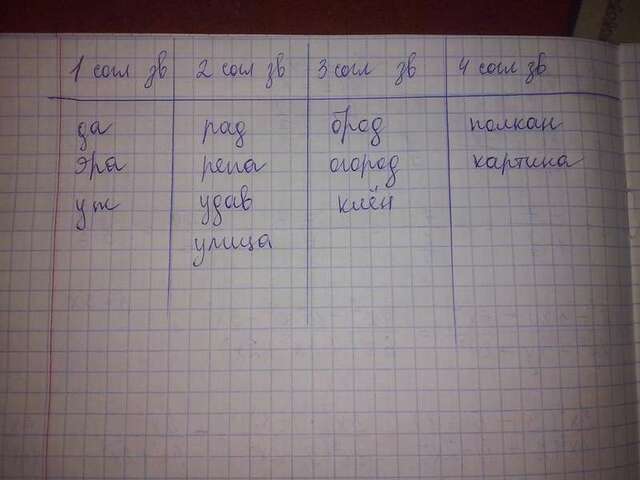 1 согл зв 2 согл зв 3 согл зв 4 согл зв
да рад брод полкан
эра репа огород картина
уж удав клён
улица